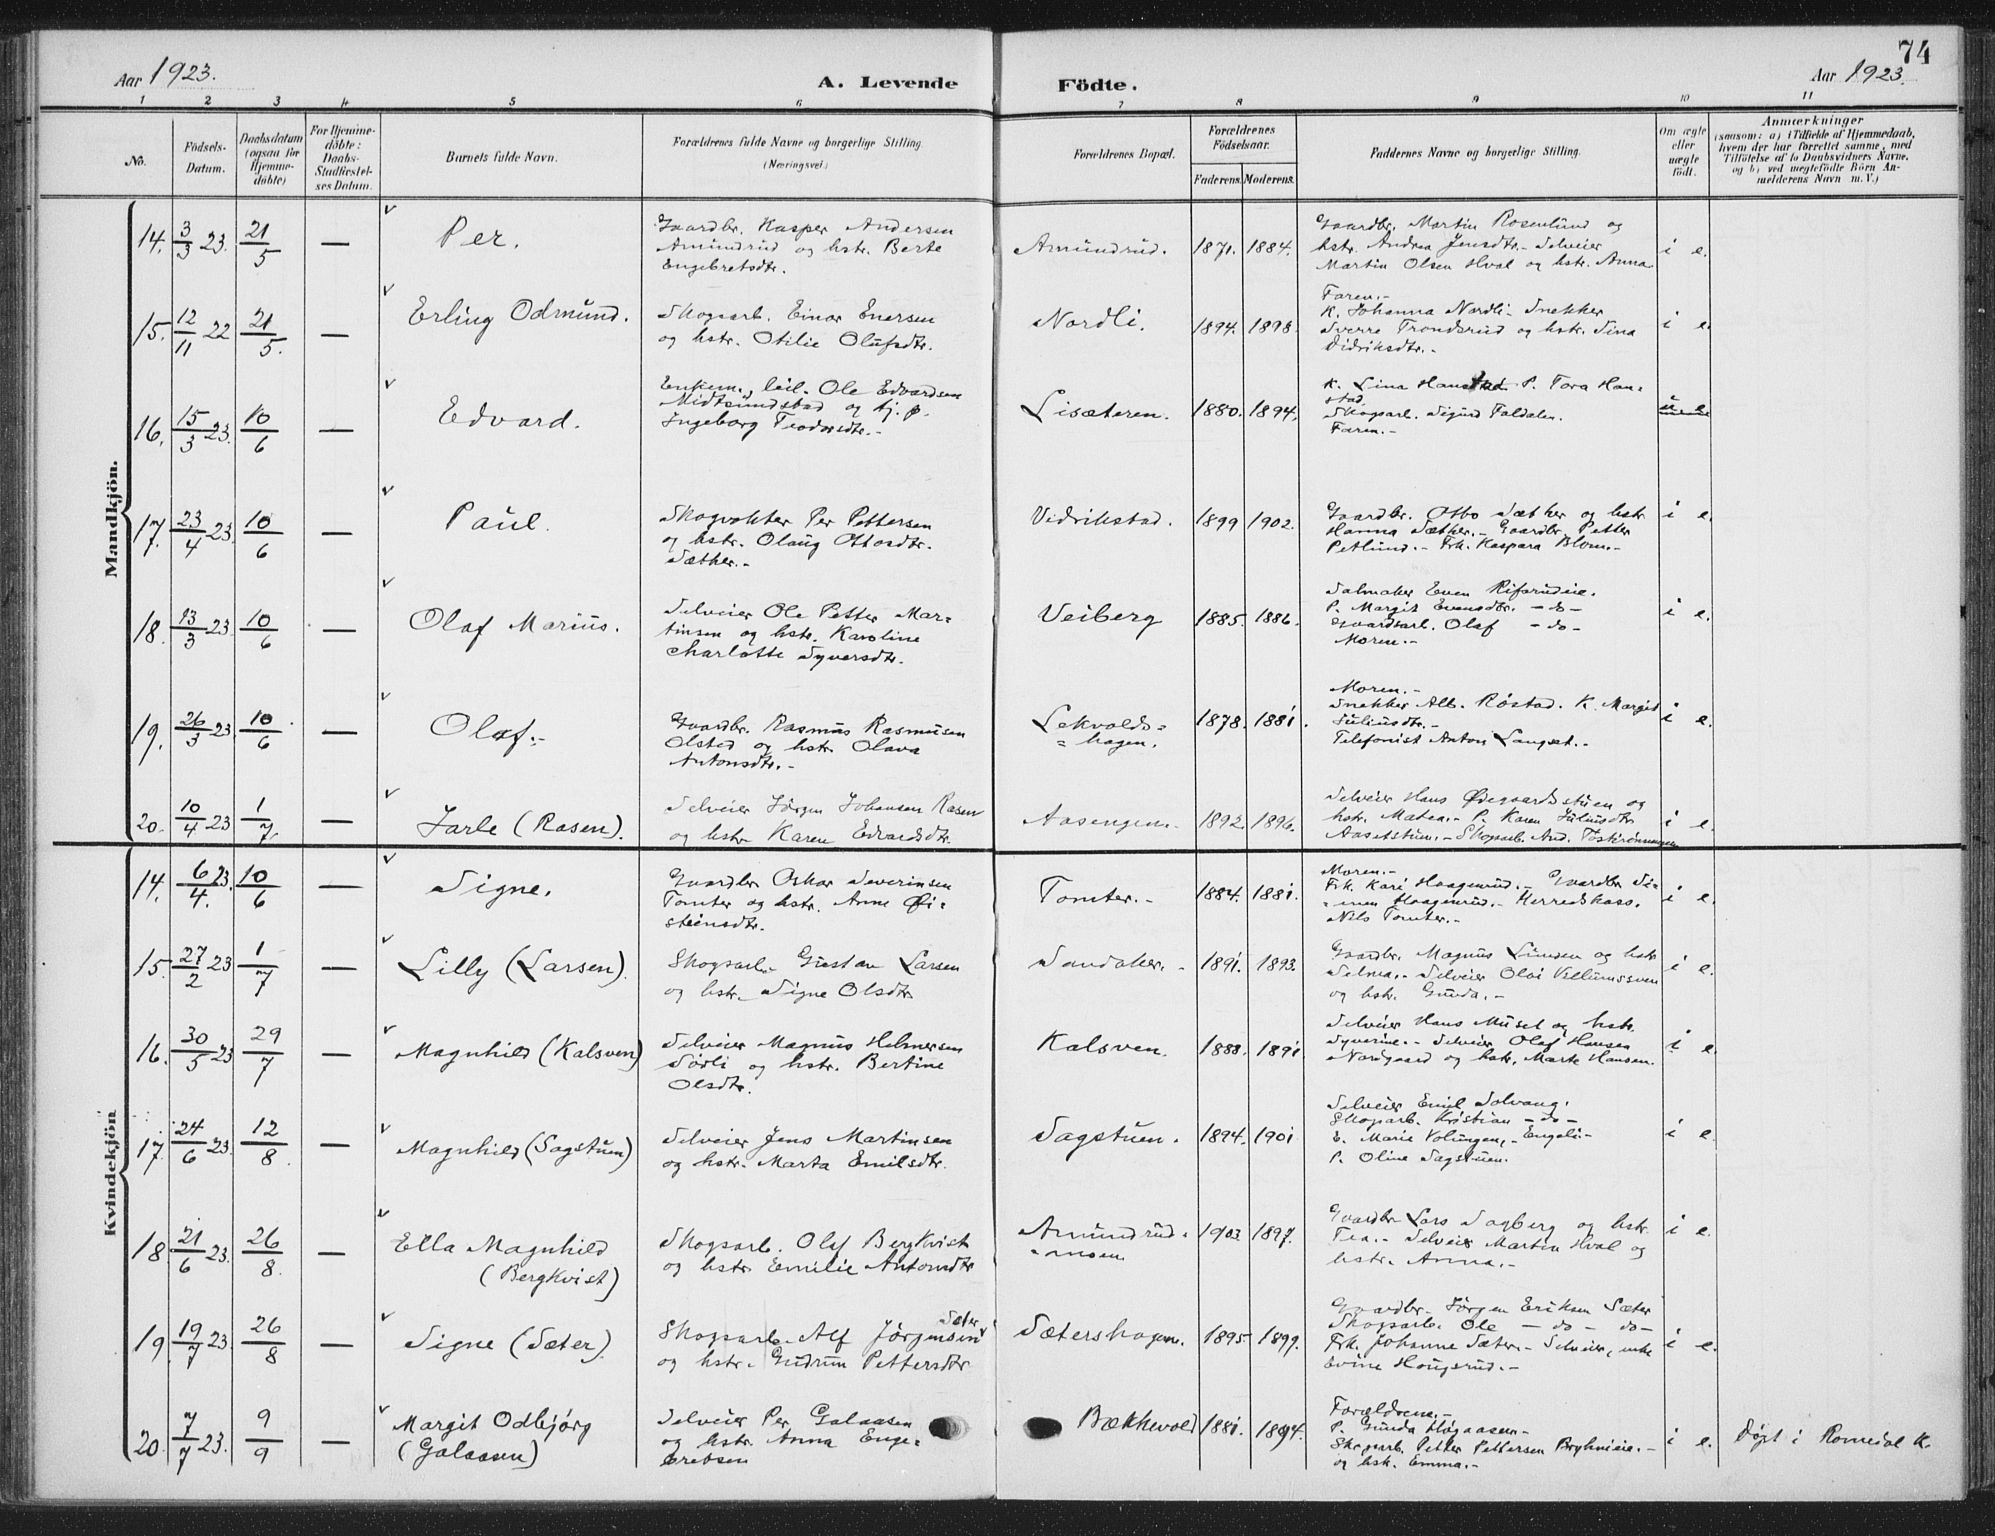 74
Aar 1923.
A. Levende
Födte.
Aar 1923.
1 2 3 4 5 6 7 8 9 10 11
No.
Födsels-
Datum.
Daabsdatum
(ogsaa for
Hjemme-
döbte)
For Hjemme-
döbte:
Daabs-
Stadfæstel-
ses Datum.
Barnets fulde Navn.
Forældrenes fulde Navne og borgerlige Stilling.
(Næringsvei)
Forældrenes Bopæl.
Forældrenes
Födselsaar.
Faderens. Moderens.
Faddernes Navne og borgerlige Stilling.
Om ægte
eller
uægte
födt.
Anmærkninger
(saasom: a) i Tilfælde af Hjemmedaab,
hvem der har forrettet samme, med
Tilföielse af to Daabsvidners Navne.
og b) ved uægtefödte Börn An-
melderens Navn m. V.)
Mandkjön.
14. 3/3 23. 21/5 — Per.
Gaardbr. Kasper Andersen
Amundrud og hstr. Berte
Engebretsdtr.
Amundrud. 1871. 1884.
Gaardbr. Martin Rosenlund og
hstr. Andrea Jensdtr.- Selveier
Martin Olsen Hval og hstr. Anna
i e.
15. 12/11 22 21/5. — Erling Odmund.
Skogsarb. Einar Enersen
og hstr. Otilie Olufsdtr.
Nordli. 1894. 1898.
Faren.-
K. Johanna Nordli- Snekker
Sverre Trondsrud og hstr. Sina
Didriksdtr.-
i e.
16. 15/3 23. 10/6 — Edvard.
Enkem., leil. Ole Edvardsen
Midtsundstad og tj. p.
Ingeborg Teodorsdtr.-
Lisæteren. 1880. 1894.
K. Lina Hanstad P. Tora Han-
stad
Skogsarb. Sigurd Faldalen.
Faren.-
17. 23/4 23. 10/6 — Paul.
Skogvokter Per Pettersen
og hstr. Olaug Ottosdtr.
Sæther.-
Vidrikstad. 1899 1902.
Gaardbr. Otto Sæther og hstr.
Hanna Sæther.- Gaardbr. Petter
Petlund.- Frk. Kaspara Blom.-
i e.
18. 13/3 23. 10/6 — Olaf Marius.
Selveier Ole Petter Mar-
tinsen og hstr. Karoline
Charlotte Syversdtr.
Veiberg 1885. 1886.
Salmaker Even
P. Margit Evensdtr. -do-
Gaardsarb. Olaf -do-
Moren.-
i e.
19. 26/3 23. 10/6 — Olaf.-
Gaardbr. Rasmus Rasmusen
Olstad og hstr. Olava
Antonsdtr.-
Lekvolds=
=hagen. 1878. 1881.
Moren.-
Snekker Alb. Røstad. K. Margit
Juliusdtr.-
Telefonist Anton Langset.-
i e.
20. 10/4 23 1/7. — Jarle (Rasen).
Selveier Jørgen Johansen Rasen
og hstr Karen Edvardsdtr.
Aasengen.- 1892. 1896.
Selveier Hans Ødegaardsstuen og
hstr. Matea.- P. Karen Juliusdtr
Aasetstuen.- Skogsarb. And.
i e.
Kvindekjön
14. 6/4. 23. 10/6 — Signe.
Gaardbr Oskar Severinsen
Tomter og hstr. Anne Øi=
steinsdtr.
Tomter.- 1884. 1881.
Moren.-
Frk. Kari Haagenrud.- Gaardbr Si=
=men Haagenrud.- Herredskass.
Nils Tomter.-
i e.
15. 27/2 23 1/7 — Lilly (Larsen).
Skogsarb. Gustav Larsen
og hstr. Signe Olsdtr
Sandaker.- 1891. 1893.
Gaardbr. Magnus Linsen og hstr
Selma.- Selveier Olai
og hstr. Gunda.-
i e.
16. 30/5 23 29/7 — Magnhild (Kalsven)
Selveier Magnus Helmersen
Sødli og hstr. Bertine
Olsdtr.
Kalsven. 1888. 1891
Selveier Hans Muset og hstr.
Syverine.- Selveier Olaf Hansen
Nordgaard og hstr. Marte Hansen.
i e.
17. 24/6 23. 12/8. — Magnhild (Sagstuen)
Selveier Jens Martinsen
og hstr. Marta Emilsdtr.
Sagstuen. 1894. 1901.
Selveier Emil Solvang.
Skogsarb. Kristian -do-
E. Marie Volungen,- Engeli-
P. Oline Sagstuen.
i e.
18. 21/6 23. 26/8. — Ella Magnhild
(Bergkvist)
Skogsarb. Olaf Bergkvist
og hstr Emilie Antonsdtr
Amundrud=
=moen 1903. 1897.
Gaardbr Lars Sagberg og hstr.
Tea.- Selveier Martin Hval og
hstr. Anna.-
i e.
19. 19/7 23. 26/8 — Signe (Sæter).
Skogsarb. Alf Jørgensen Sæter
og hstr. Gudrun Pettersdtr
Sætershagen. 1895 1899.
Gaardbr. Jørgen Eriksen Sæter
Skogsarb. Ole -do- -do-
Frk. Johanne Sæter.- Selveier, enke
Evine Haugsrud.-
i e.
20. 7/7 23. 9/9 — Margit Odbjørg
(Galaasen)
Selveier Per Galaasen
og hstr. Anna Enge=
bretsen
Bækkevold 1881. 1894.
Forældrene.-
P. Gunda Høgaasen-
Skogsarb. Petter Pettersen Bryhnieie.-
og hstr. Emma.-
i e. Døpt i Romedal K.